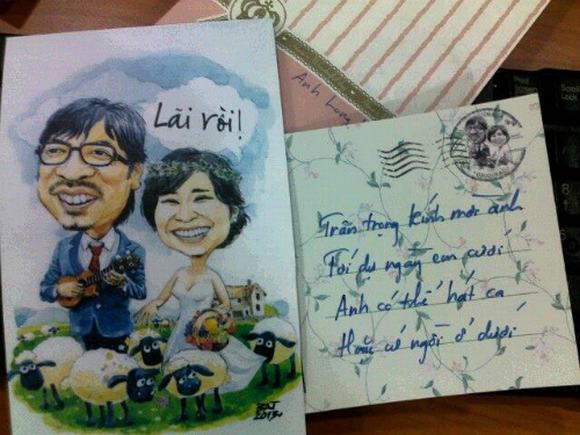 Lãi rồi!
Anh Long
Trân trọng kính mời anh
Tới dự ngày em cưới
Anh có thể hát ca
Hoặc cứ ngồi ở dưới
2013
Scroll
Lock